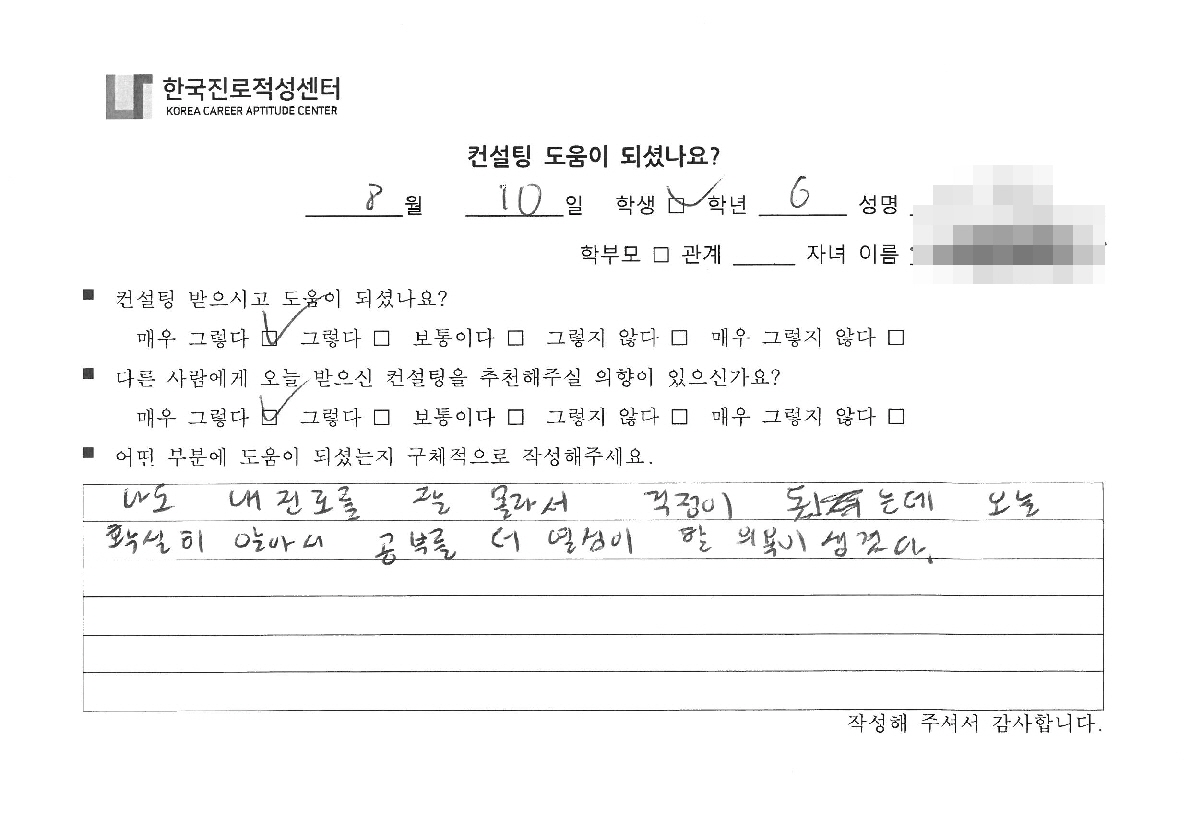 한국진로적성센터
KOREA CAREER APTITUDE CENTER
컨설팅 도움이 되셨나요?
8 월 10 일 학생 ☑ 학년 6 성명
학부모 □ 관계 자녀 이름
■ 컨설팅 받으시고 도움이 되셨나요?
매우 그렇다 ☑ 그렇다 □ 보통이다 □ 그렇지 않다 □ 매우 그렇지 않다 □
■ 다른 사람에게 오늘 받으신 컨설팅을 추천해주실 의향이 있으신가요?
매우 그렇다 ☑ 그렇다 □ 보통이다 □ 그렇지 않다 □ 매우 그렇지 않다 □
■ 어떤 부분에 도움이 되셨는지 구체적으로 작성해주세요.
나도 내 진로를 잘 몰라서 걱정이 는데 오늘
확실히 알아서 공부를 더 열심이 할 의욕이 생겼다.
작성해 주셔서 감사합니다.